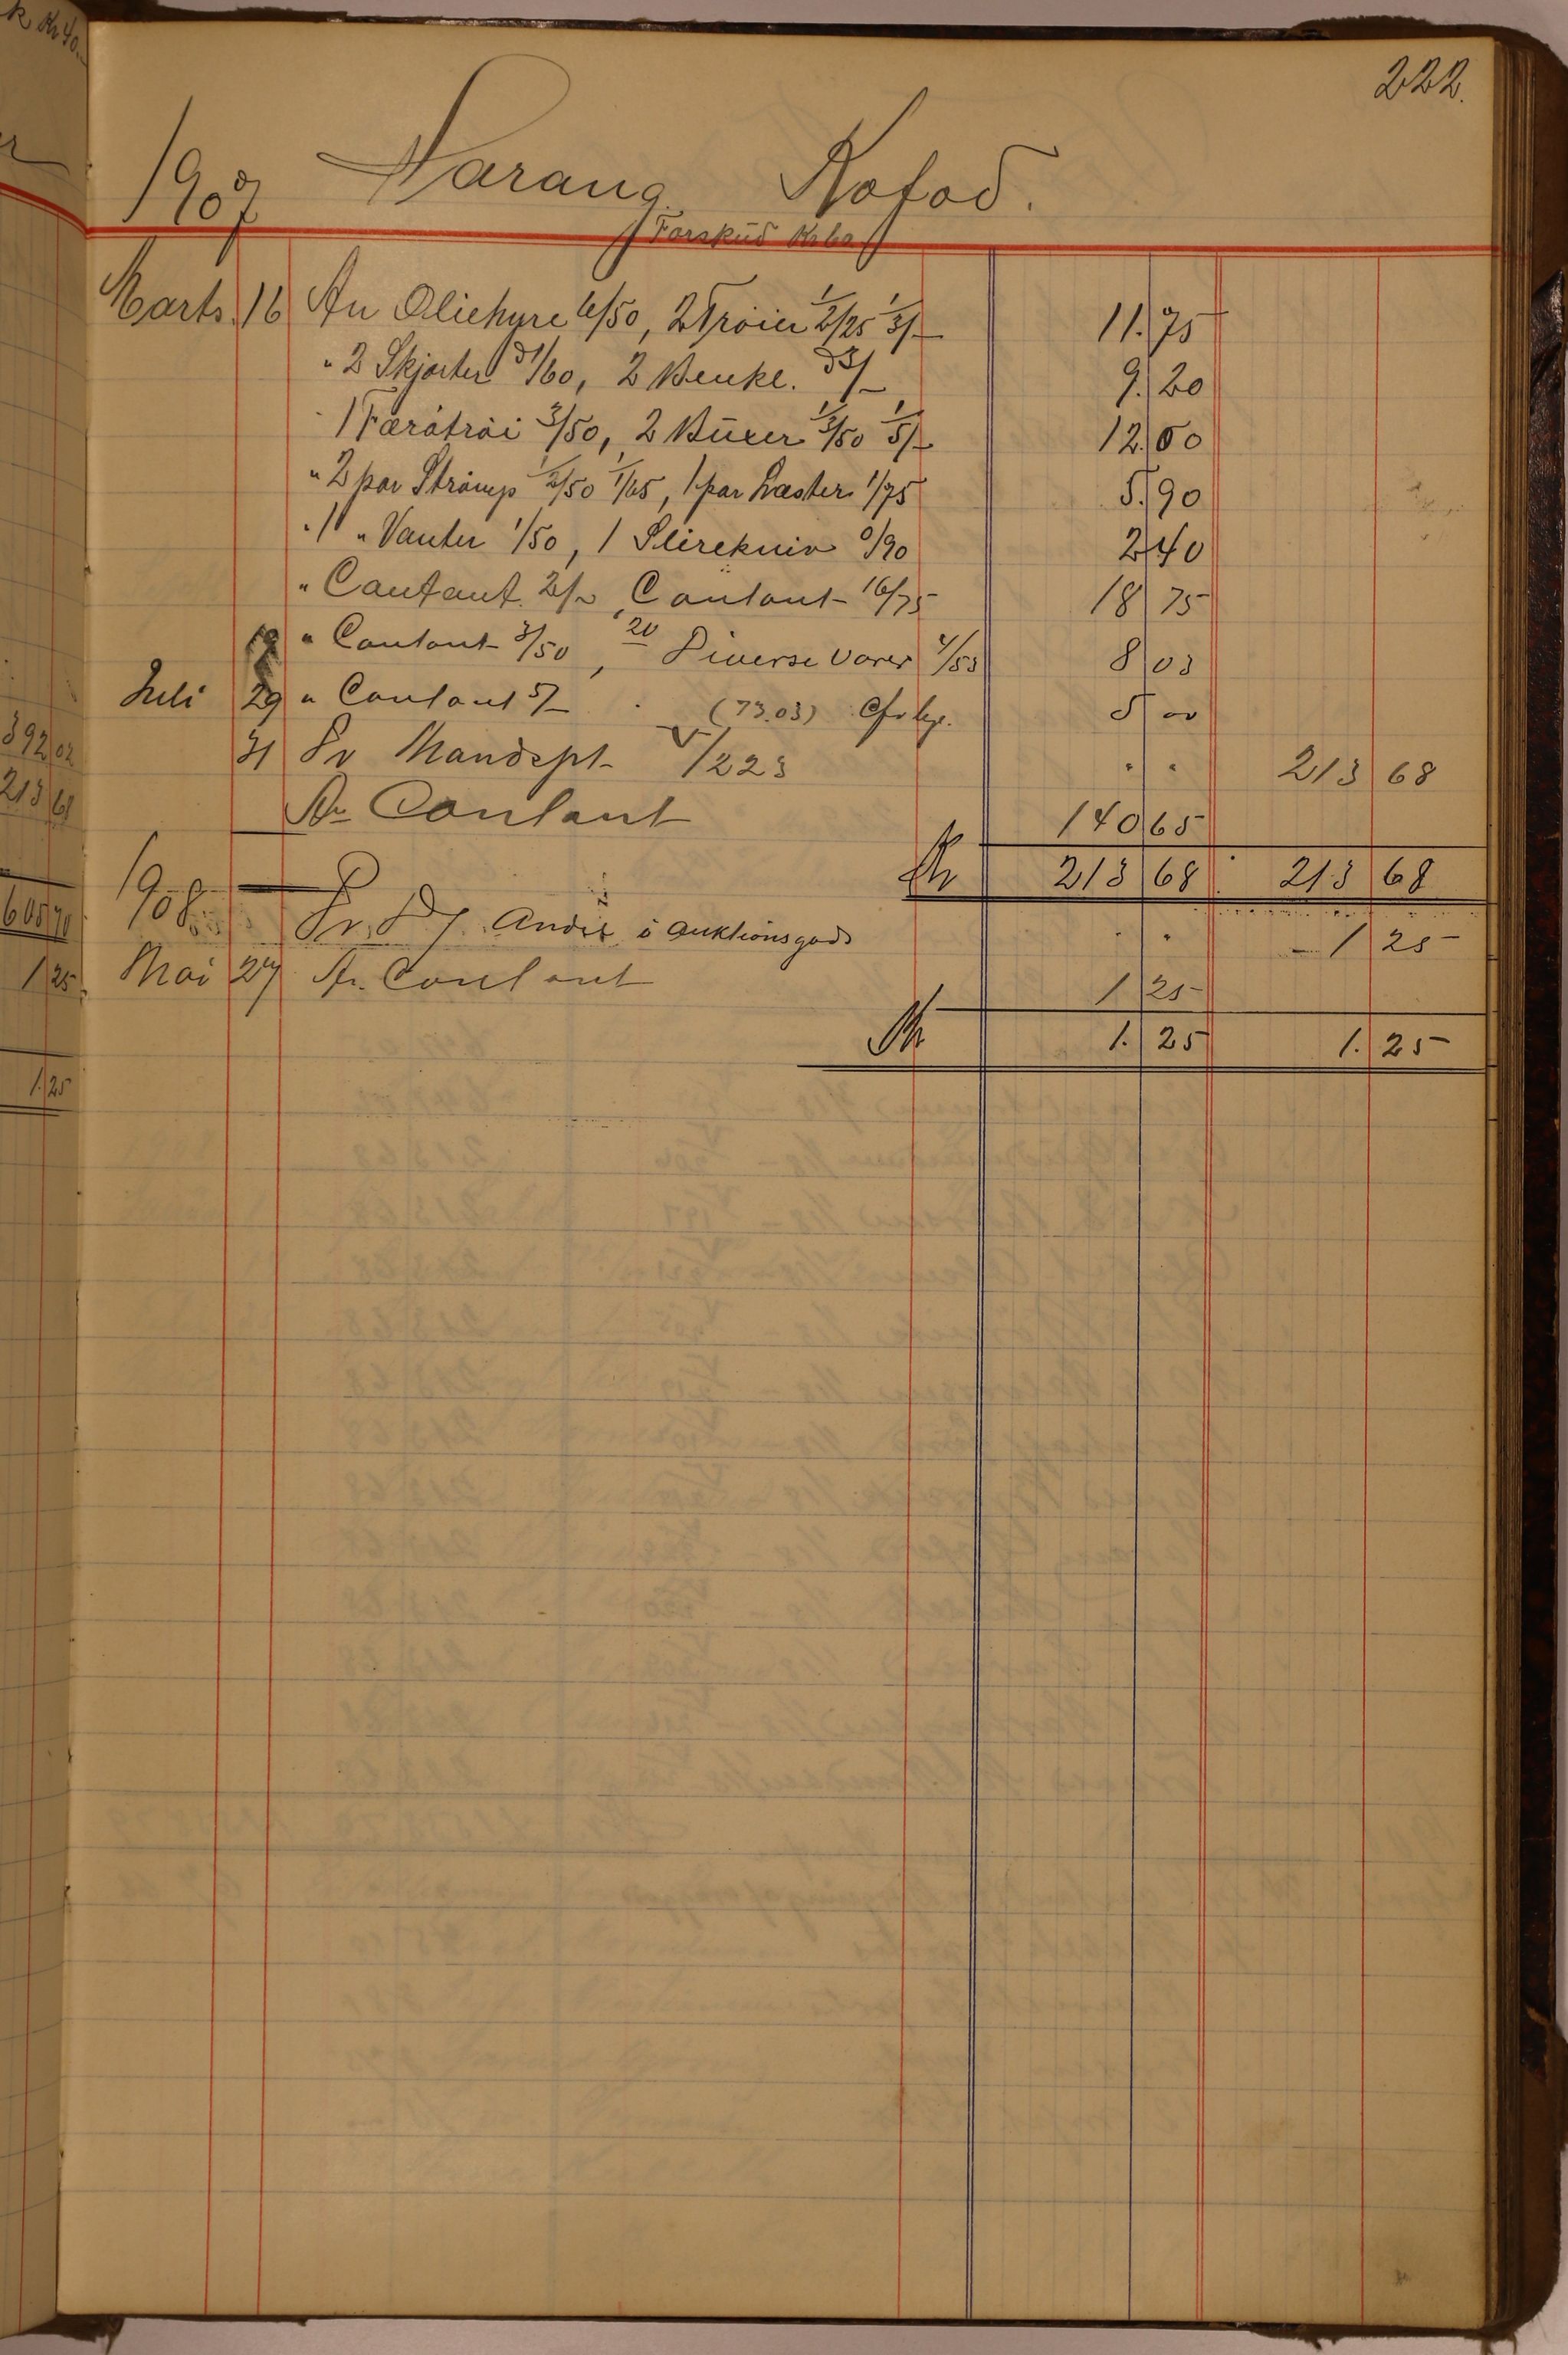 222.
1907 Karang Kofod.
Forskud Kr 60
Marts. 16 An Oliehyre 6/50, 2 Trøier 1/2/25 1/3/- 11.75
" 2 Skjorter à 1/60, 2 Benkl. à 3/- 9.20
- 1 Færøtrøi 3/50, 2 Buxer 1/3/50 1/5/- 12.00
" 2 par Strømp 1/2/50 1/1/65, 1 par Læster 1/75 5.90
" 1 " Vanter 1/50, 1 Slirekniv 0/90 2 40
" Contant. 2/-, Contant - 16/75 18 75
19 " Contant 3/50, 20 Diverse varer 4/53 8 03
Juli 29 " Contant 5/- (73.03) 5 00
31 Pr Mandspt. V/223 " " 213 68
An Contant 140 65
Kr 213 68 213 68
1908
Pr. Andel i Auktionsgods " " 1 25
Mai 27 An. Contant 1 25
Kr 1. 25 1. 25
392 02
213 68
605 70
1 25
1. 25